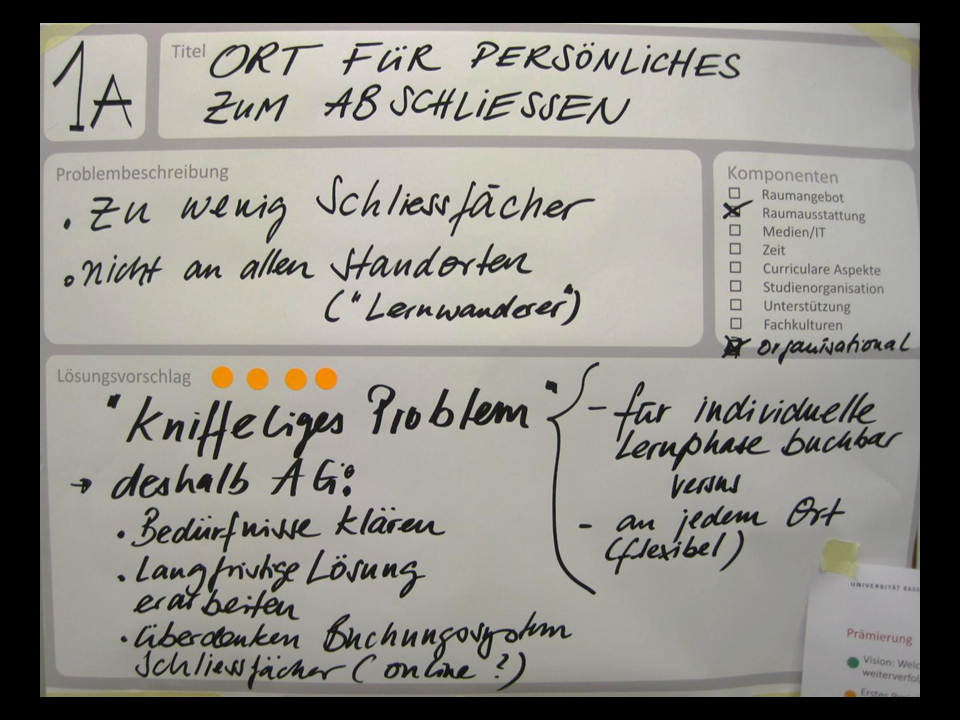 1A
Titel ORT FÜR PERSÖNLICHES
ZUM ABSCHLIESSEN
Problembeschreibung
• Zu wenig Schliessfächer
• nicht an allen Standorten
("Lernwanderer")
Komponenten
Raumangebot
Raumausstattung
Medien/IT
Zeit
Curriculare Aspekte
Studienorganisation
Unterstützung
Fachkulturen
organisational
Lösungsvorschlag
"kniffeliges Problem"
→ deshalb AG:
• Bedürfnisse klären
• Langfristige Lösung
erarbeiten
• überdenken Buchungssystem
Schliessfächer (online?)
- für individuelle
Lernphase buchbar
versus
- an jedem Ort
(flexibel)
UNIVERSITÄT BASE
Prämierung
Vision: Welc
weiterverfol
Erstes